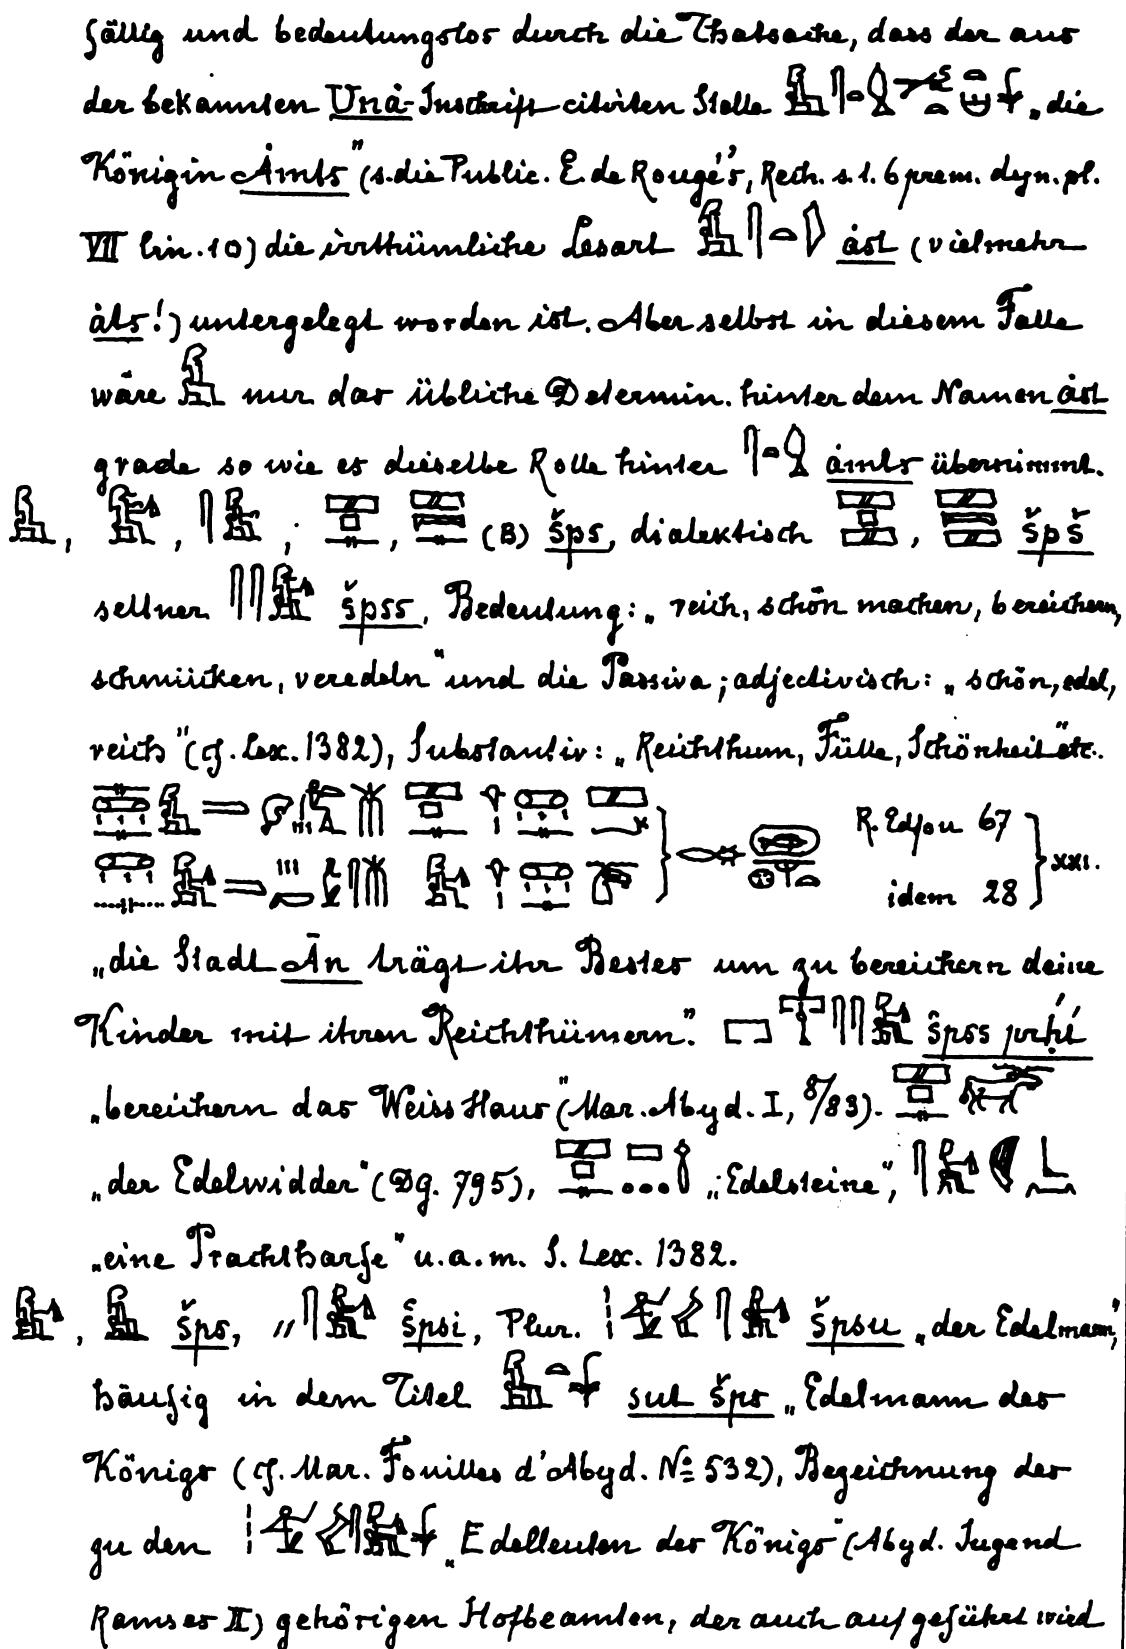 fällig und bedeutungslos durch die Thatsache, dass der aus
der bekannten Unȧ-Inschrift citirten Stelle „die
Königin Ȧmts" (s. die Public. E. de Rougé's, Rech. s. l. 6 prem. dyn. pl.
VII lin. 10) die irrthümliche Lesart ȧst (vielmehr
ȧts!) untergelegt worden ist. Aber selbst in diesem Falle
wäre nur das übliche Determin. hinter dem Namen ȧst
grade so wie es dieselbe Rolle hinter ȧmts übernimmt.
, , ; , (B) šps, dialektisch , špš
seltner špss, Bedeutung: „reich, schön machen, bereichern,
schmücken, veredeln" und die Passiva; adjectivisch: „schön, edel,
reich" (cf. Lex. 1382), Substantiv: „Reichthum, Fülle, Schönheit" etc.
R. Edfou 67
idem 28 } XXI.
„die Stadt Ān trägt ihr Bestes um zu bereichern deine
Kinder mit ihren Reichthümern." špss
„bereichern das Weiss Haus" (Mar. Abyd. I, 8/83).
„der Edelwidder" (Dg. 795), „Edelsteine",
„eine Prachtharfe" u.a.m. S. Lex. 1382.
, šps, špsi, Plur. špsu „der Edelmann",
häufig in dem Titel sut šps „Edelmann des
Königs (cf. Mar. Fouilles d'Abyd. № 532), Bezeichnung des
zu den „Edelleuten des Königs" (Abyd. Jugend
Ramses II) gehörigen Hofbeamten, der auch aufgeführt wird